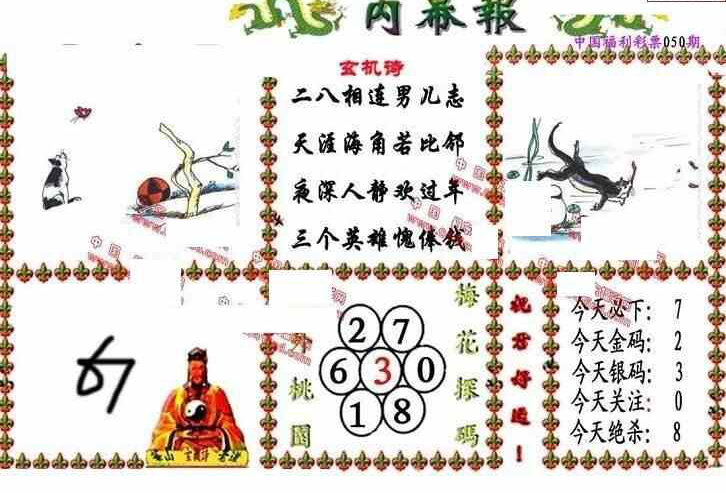 内幕報
中国福利彩票050期
玄机诗
二八相连男儿志
天涯海角若比邻
夜深人静欢过年
三个英雄愧俸钱
梅花探碼
外桃園
2 7
6 3 0
1 8
祝君好运！
今天必下： 7
今天金码： 2
今天银码： 3
今天关注： 0
今天绝杀： 8